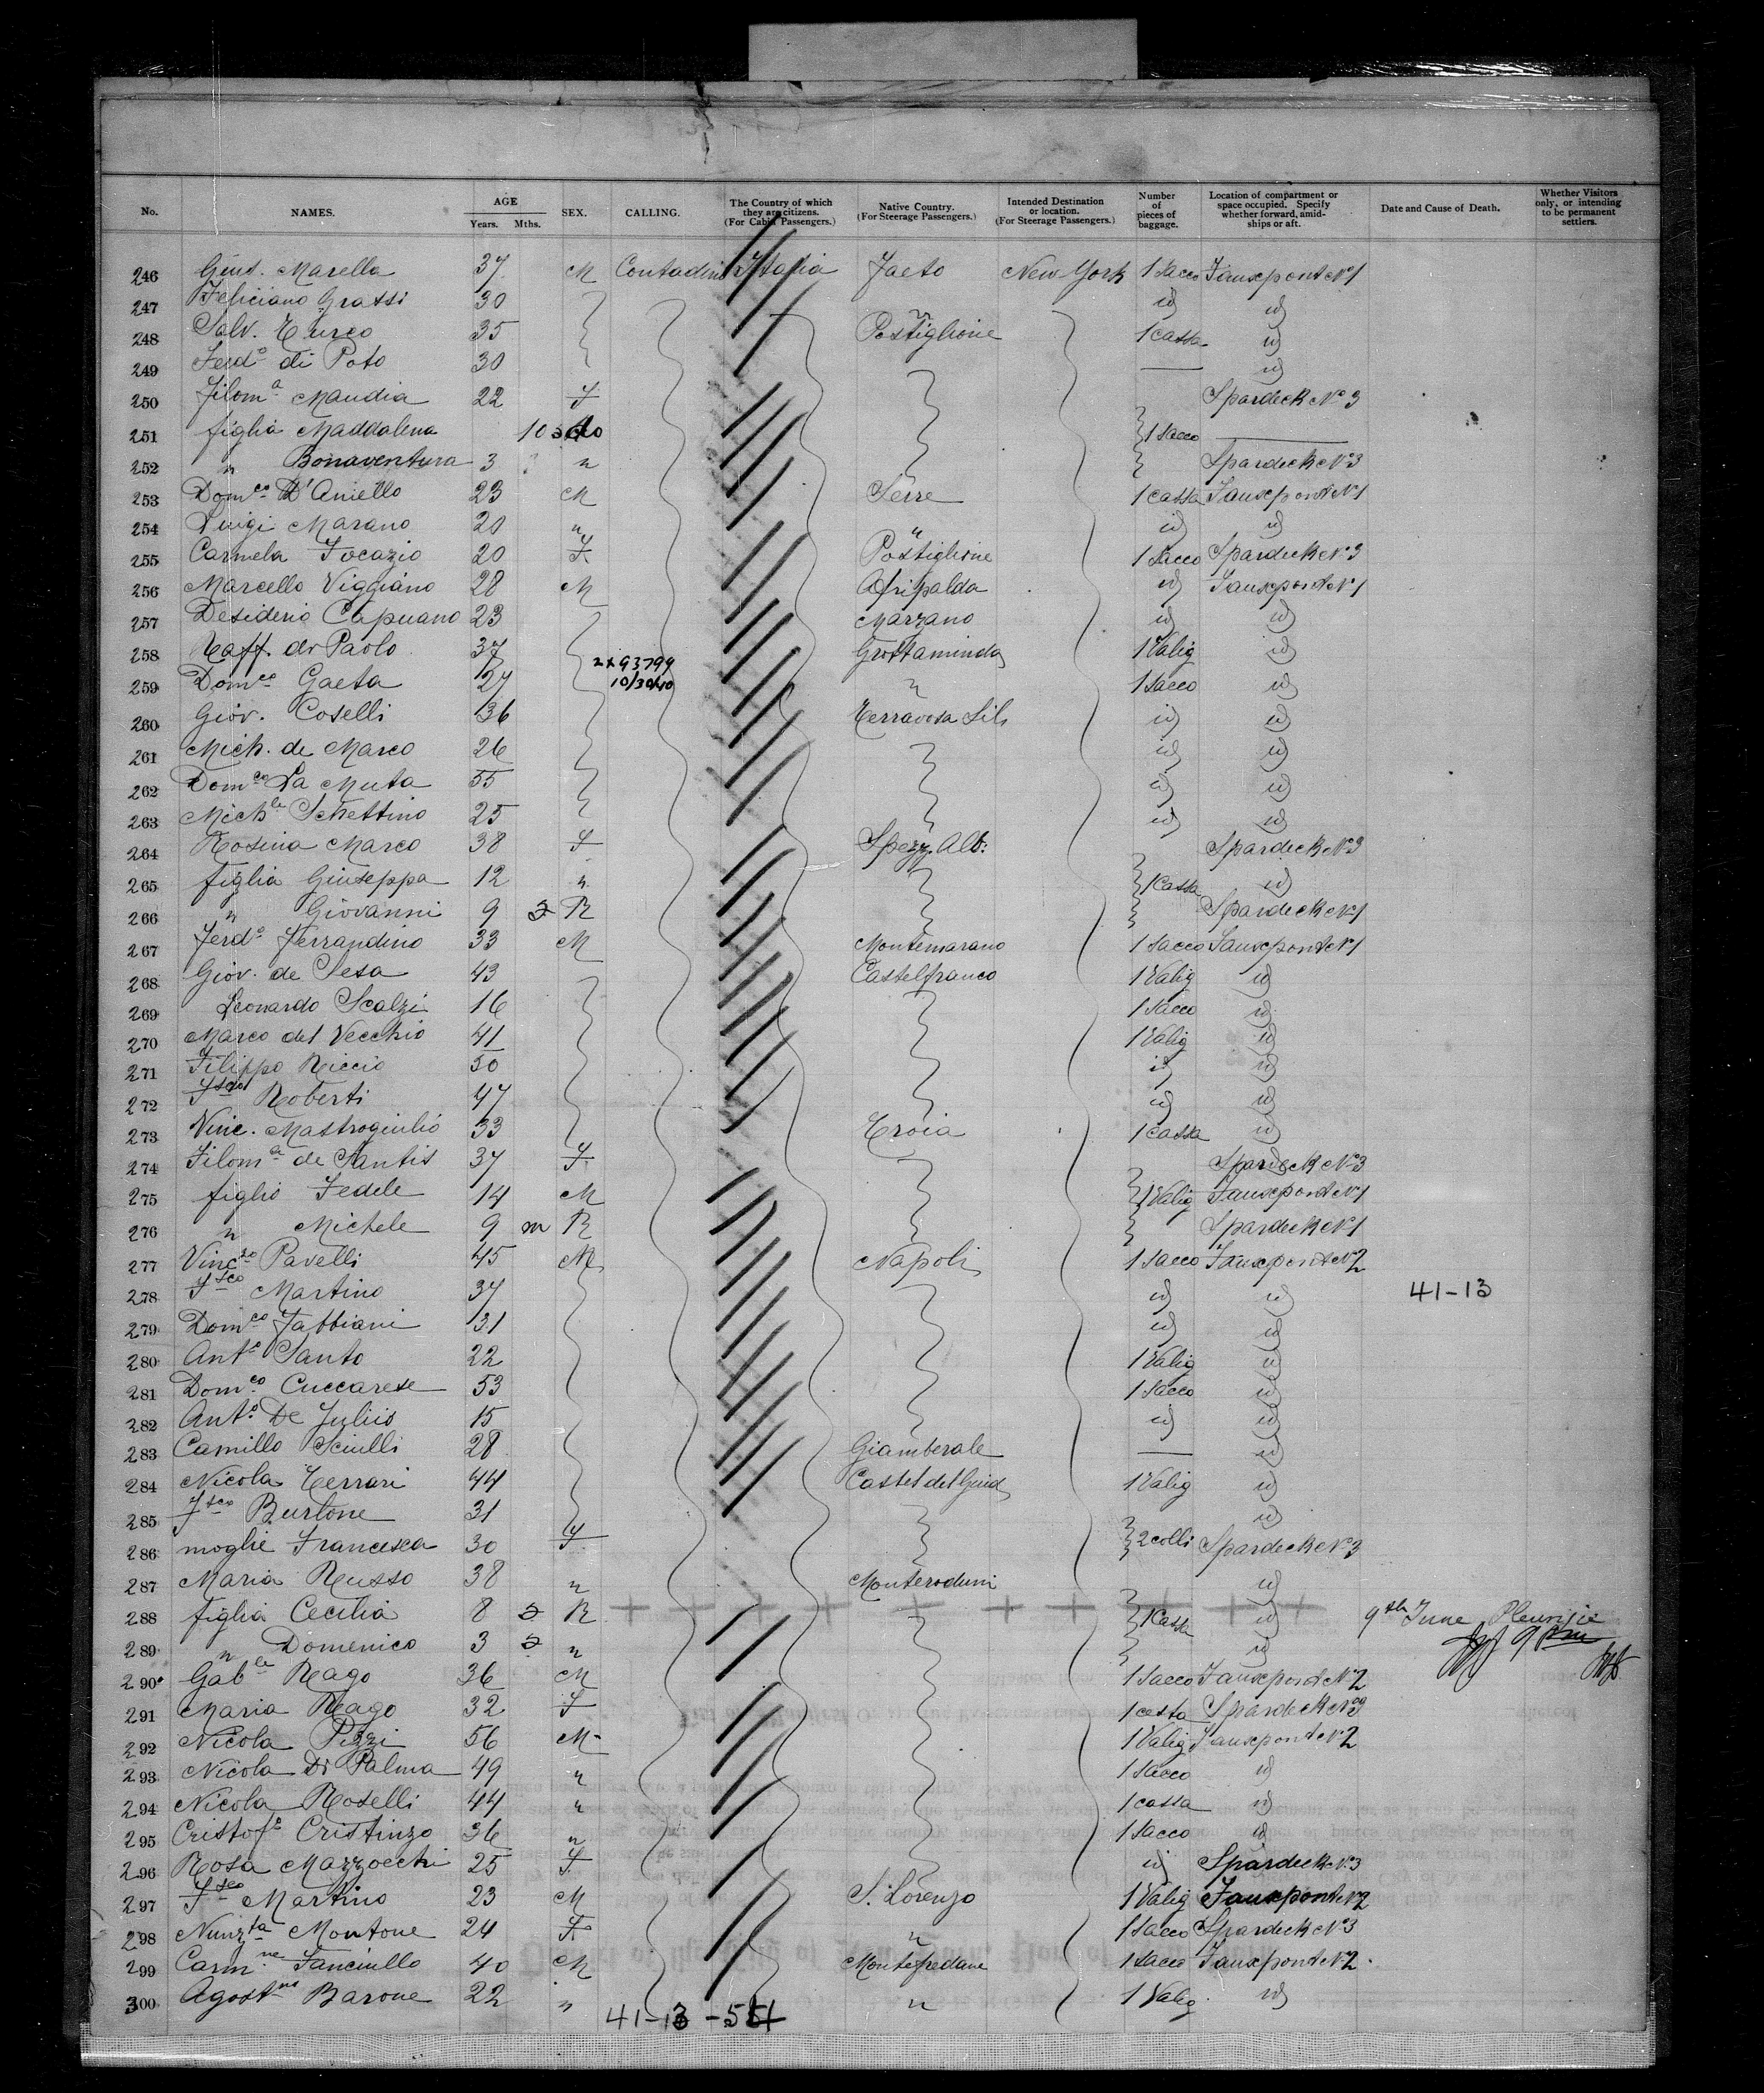 No. NAMES. AGE Years. Mths. SEX. CALLING. The Country of which they are citizens. (For Cabin Passengers.) Native Country. (For Steerage Passengers.) Intended Destination or location. (For Steerage Passengers.) Number of pieces of baggage. Location of compartment or space occupied. Specify whether forward, amidships or aft. Date and Cause of Death. Whether Visitors only, or intending to be permanent settlers.
246 Gius. Marella 37 M Contadini Italia Faeto New York 1 Sacco No 1
247 Feliciano Grassi 30 " id id
248 Salv. Turco 35 Postiglione 1 cassa id
249 Ferdo di Poto 30 — id
250 Filoma Mandia 22 F Spardeck No 3
251 figlia Maddalena 10 do 1 Sacco —
252 " Bonaventura 3 " Spardeck No 3
253 Domco D'Aniello 23 M Serre 1 cassa No 1
254 Luigi Marano 20 " " id id
255 Carmela Focazio 20 F Postiglione 1 Sacco Spardeck No 3
256 Marcello Viggiano 28 M Atripalda id No 1
257 Desiderio Capuano 23 Marzano id id
258 Raff. di Paolo 37 Grottaminda 1 Valig id
2x93799
259 Domco Gaeta 27 10/30/40 " 1 Sacco id
260 Giov. Coselli 36 id id
261 Mich. de Marco 26 id id
262 Domco La Muta 55 id id
263 Michle Schettino 25 id id
264 Rosina Marco 38 F Spezz. Alb: Spardeck No 3
265 figlia Giuseppa 12 " 1 Cassa id
266 " Giovanni 9 R Spardeck No 1
267 Ferdo Ferrandino 33 M Montemarano 1 Sacco No 1
268 Giov. de Sesa 43 Castelfranco 1 Valig id
269 Leonardo Scalzi 16 1 Sacco id
270 Marco del Vecchio 41 1 Valig id
271 Filippo Riccio 50 id id
272 Fsco Roberti 47 id id
273 Vinc. Mastrogiulio 33 Troia 1 cassa id
274 Filoma de Santis 37 F Spardeck No 3
275 figlio Fedele 14 M 1 Valig No 1
276 " Michele 9 m R Spardeck No 1
277 Vinczo Pavelli 45 M Napoli 1 Sacco No 2
278 Fsco Martino 37 id id 41-13
279 Domco Fabbiani 31 id id
280 Anto Santo 22 1 Valig id
281 Domco Cuccarese 53 1 Sacco id
282 Anto De Juliis 15 id id
283 Camillo Sciulli 28 Giamberale — id
284 Nicola Terrari 44 Castel del Giud 1 Valig id
285 Fsco Burlone 31 id
286 moglie Francesca 30 F 2 colli Spardeck No 3
287 Maria Russo 38 " Monteroduni id
288 figlia Cecilia 8 R 1 Cassa id 9th June Pleurisie
289 " Domenico 3 " id 9 pm
290 Gable Rago 36 M 1 Sacco No 2
291 Maria Rago 32 F 1 cesta Spardeck No 3
292 Nicola Pizzi 56 M 1 Valig No 2
293 Nicola Di Palma 49 " 1 Sacco id
294 Nicola Roselli 44 " 1 cassa id
295 Cristofo Cristinzo 36 " 1 Sacco id
296 Rosa Mazzocchi 25 F id Spardeck No 3
297 Fsco Martino 23 M S. Lorenzo 1 Valig No 2
298 Nunzta Montone 24 F " 1 Sacco Spardeck No 3
299 Carmne Fanciullo 40 M Montefredane 1 Sacco No 2
300 Agostno Barone 22 " " 1 Valig id